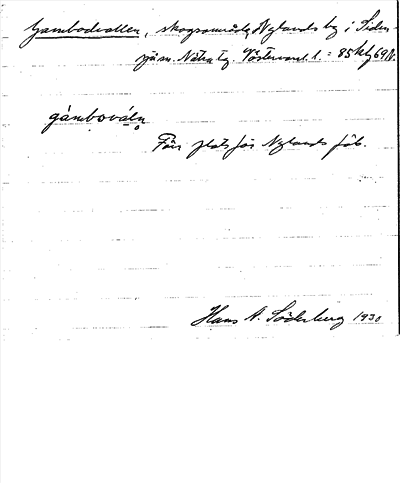 Gambodvallen, skogsområde, Nylands by i Siden-
sjö sn. Nätra tg. Västernorrl. l.
gåmbovåln
Förr plats för Nylands fäb.
Hans A. Söderberg 1930